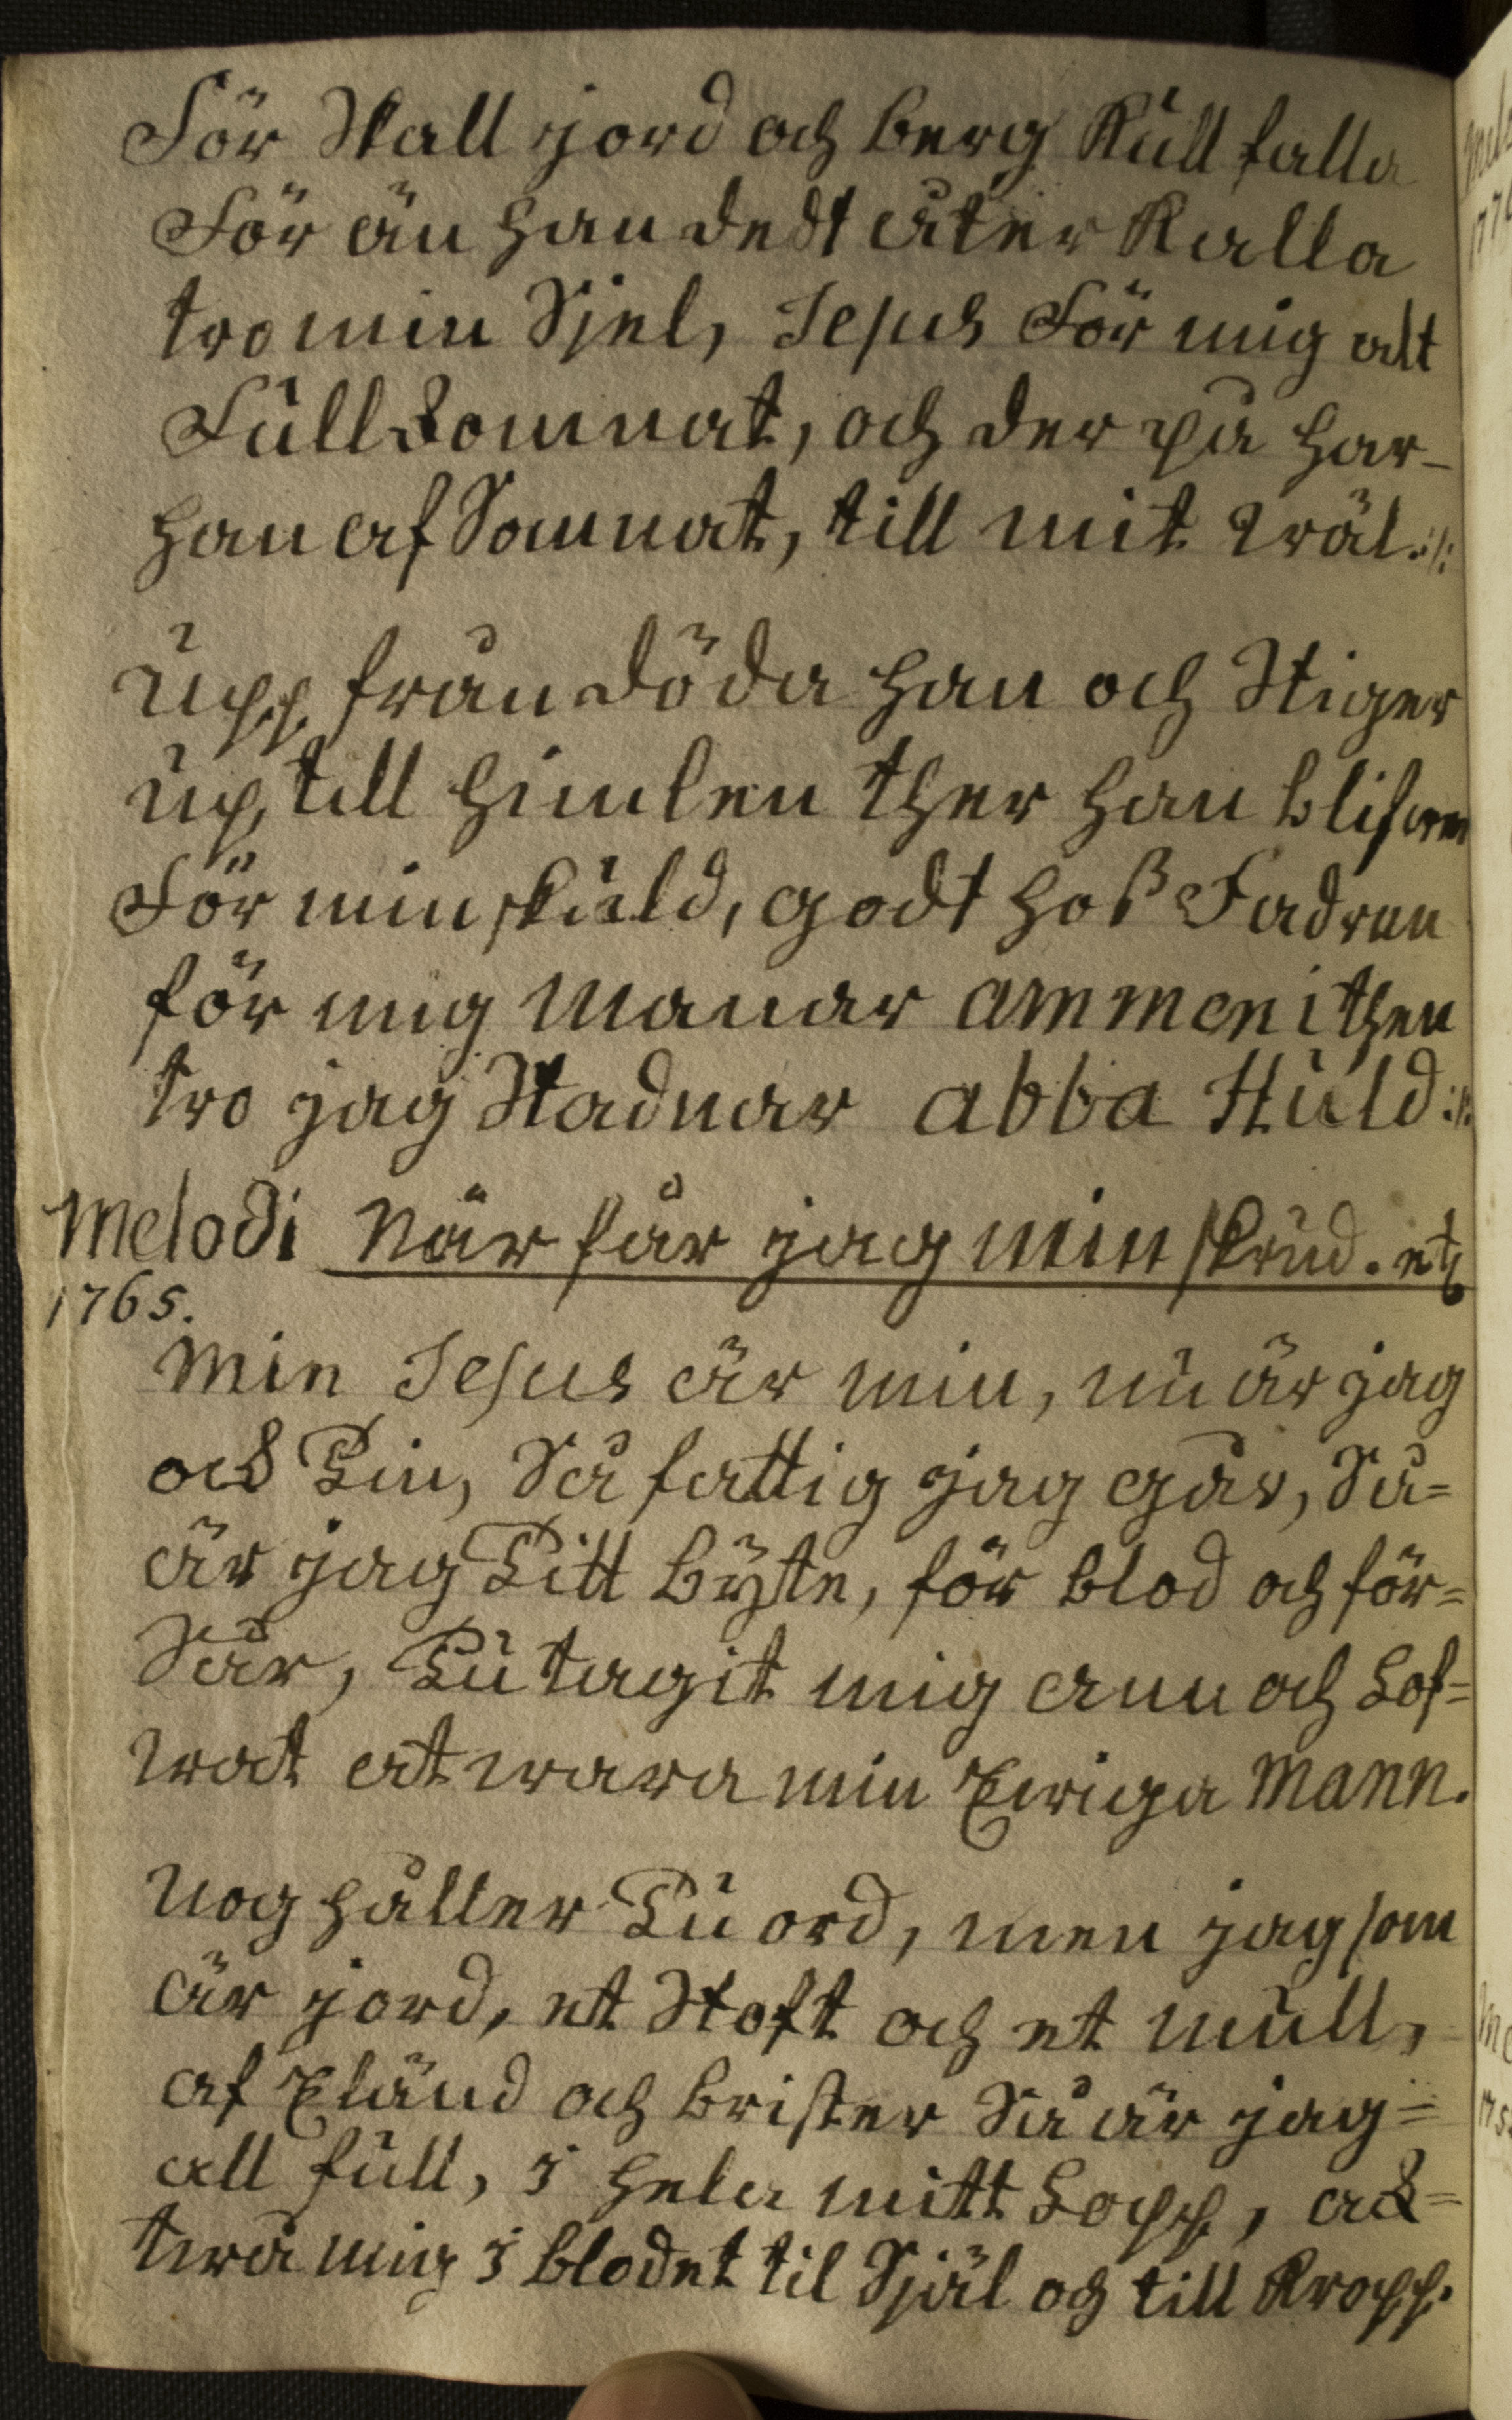 För Skall jord och berg Kull falla
För än han dedt åter Kalla
tro min Sjel, Jesus För mig alt
Fullkomnat, och der på har-
han af Somnat, till mit wäl.:/:
Upp från döda han och Stiger
up till himlen ther han blifwer
För min skuld, godt hoß Fadren
för mig Manar ammen i then
tro jag Stadnar abba Huld:/:
Melodi När får jag min skrud. etc
1765.
Min Jesus är min, nu är jag
ock Din, Så fattig jag går, Så=
är jag Ditt byte, för blod och för=
Sår, Du tagit mig ann och Lof=
wat at wara min Ewiga Mann.
Nog håller Du ord, men jag som
är jord, et Stoft och et mull,
af Eländ och brister Så är jag=
all full, i hela mitt Lopp, ack=
twå mig i blodet til Själ och till Kropp.